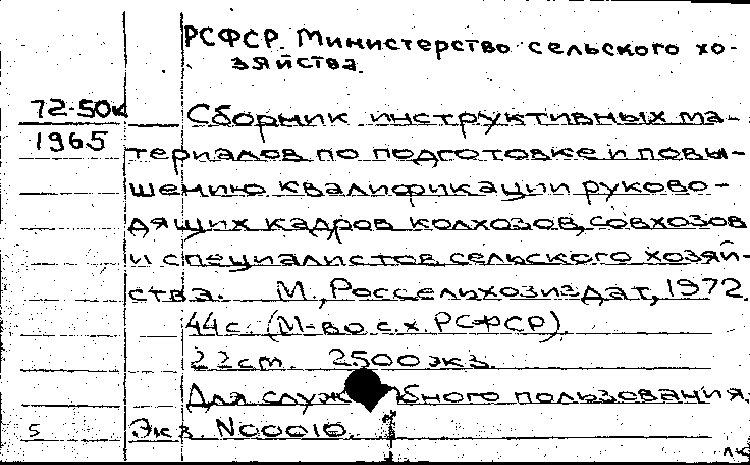 РСФСР. Министерство сельского хо-
зяйства.
72-50к
Сборник инструктивных ма-
1965
териалов по подготовке и повы-
шению квалификации руково-
дящих кадров колхозов, совхозов
и специалистов сельского хозяй-
ства. М., Россельхозиздат, 1972.
44 с. (М-во с.х. РСФСР).
22 см. 2500 экз.
Для служебного пользования.
5 Экз. N00010.